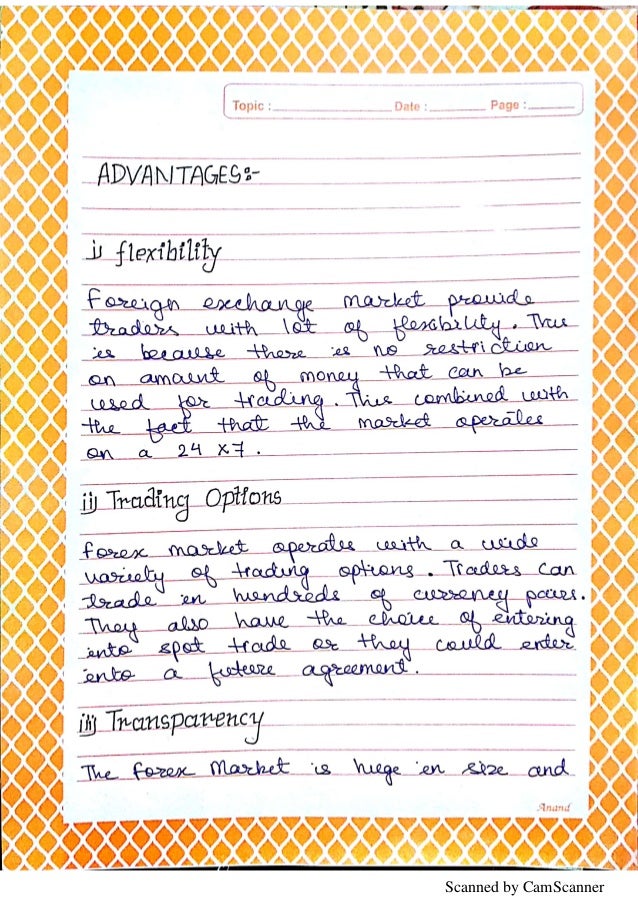 Topic : Date : Page :
ADVANTAGES:-
i) flexibility
Foreign exchange market provide
traders with lot of flexibility. This
is because there is no restriction
on amount of money that can be
used for trading. This combined with
the fact that the market operates
on a 24 x 7 .
ii) Trading Options
Forex market operates with a wide
variety of trading options. Traders can
trade in hundreds of currency pairs.
They also have the choice of entering
into spot trade or they could enter
into a future agreement.
iii) Transparency
The forex Market is huge in size and
Anand
Scanned by CamScanner